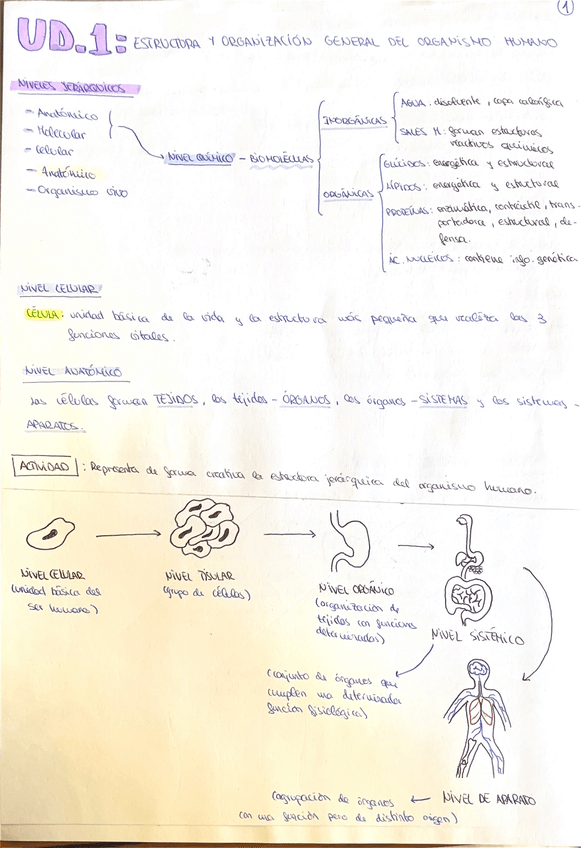 1
UD.1: ESTRUCTURA Y ORGANIZACIÓN GENERAL DEL ORGANISMO HUMANO
NIVELES JERÁRQUICOS
- Anatómico
- Molecular
- Celular
- Anatómico
- Organismo vivo
NIVEL QUÍMICO - BIOMOLÉCULAS
INORGÁNICAS
AGUA. disolvente, capa calorífica
SALES M: forman estructuras
reactivos químicos
ORGÁNICAS
GLÚCIDOS: energética y estructural
LÍPIDOS: energética y estructural
PROTEÍNAS: enzimática, contráctil, trans-
portadora, estructural, de-
fensa.
ÁC. NUCLÉICOS: contiene info. genética
NIVEL CELULAR
CÉLULA: unidad básica de la vida y la estructura más pequeña que realiza las 3
funciones vitales.
NIVEL ANATÓMICO
Las células forman TEJIDOS, los tejidos - ÓRGANOS, los órganos - SISTEMAS y los sistemas -
APARATOS.
ACTIVIDAD: Representa de forma creativa la estructura jerárquica del organismo humano.
NIVEL CELULAR
(unidad básica del
ser humano)
NIVEL TISULAR
(grupo de células)
NIVEL ORGÁNICO
(organización de
tejidos con funciones
determinadas)
NIVEL SISTÉMICO
(conjunto de órganos que
cumplen una determinada
función fisiológica)
NIVEL DE APARATO
(agrupación de órganos
con una función pero de distinto origen)